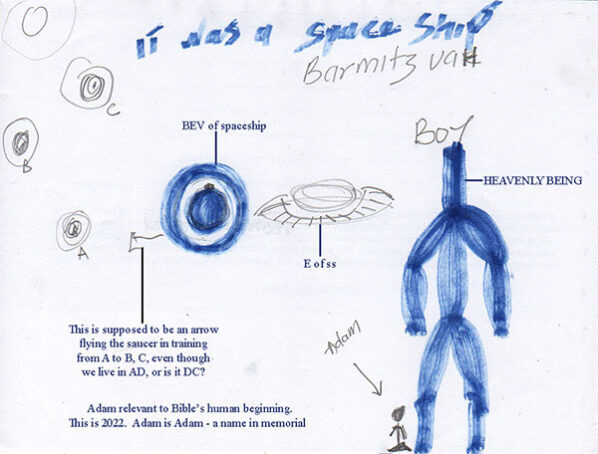 it was a space ship
Barmitz vaH
C
B
A
BEV of spaceship
BOY
HEAVENLY BEING
E of ss
This is supposed to be an arrow
flying the saucer in training
from A to B, C, even though
we live in AD, or is it DC?
Adam
Adam relevant to Bible's human beginning.
This is 2022. Adam is Adam - a name in memorial